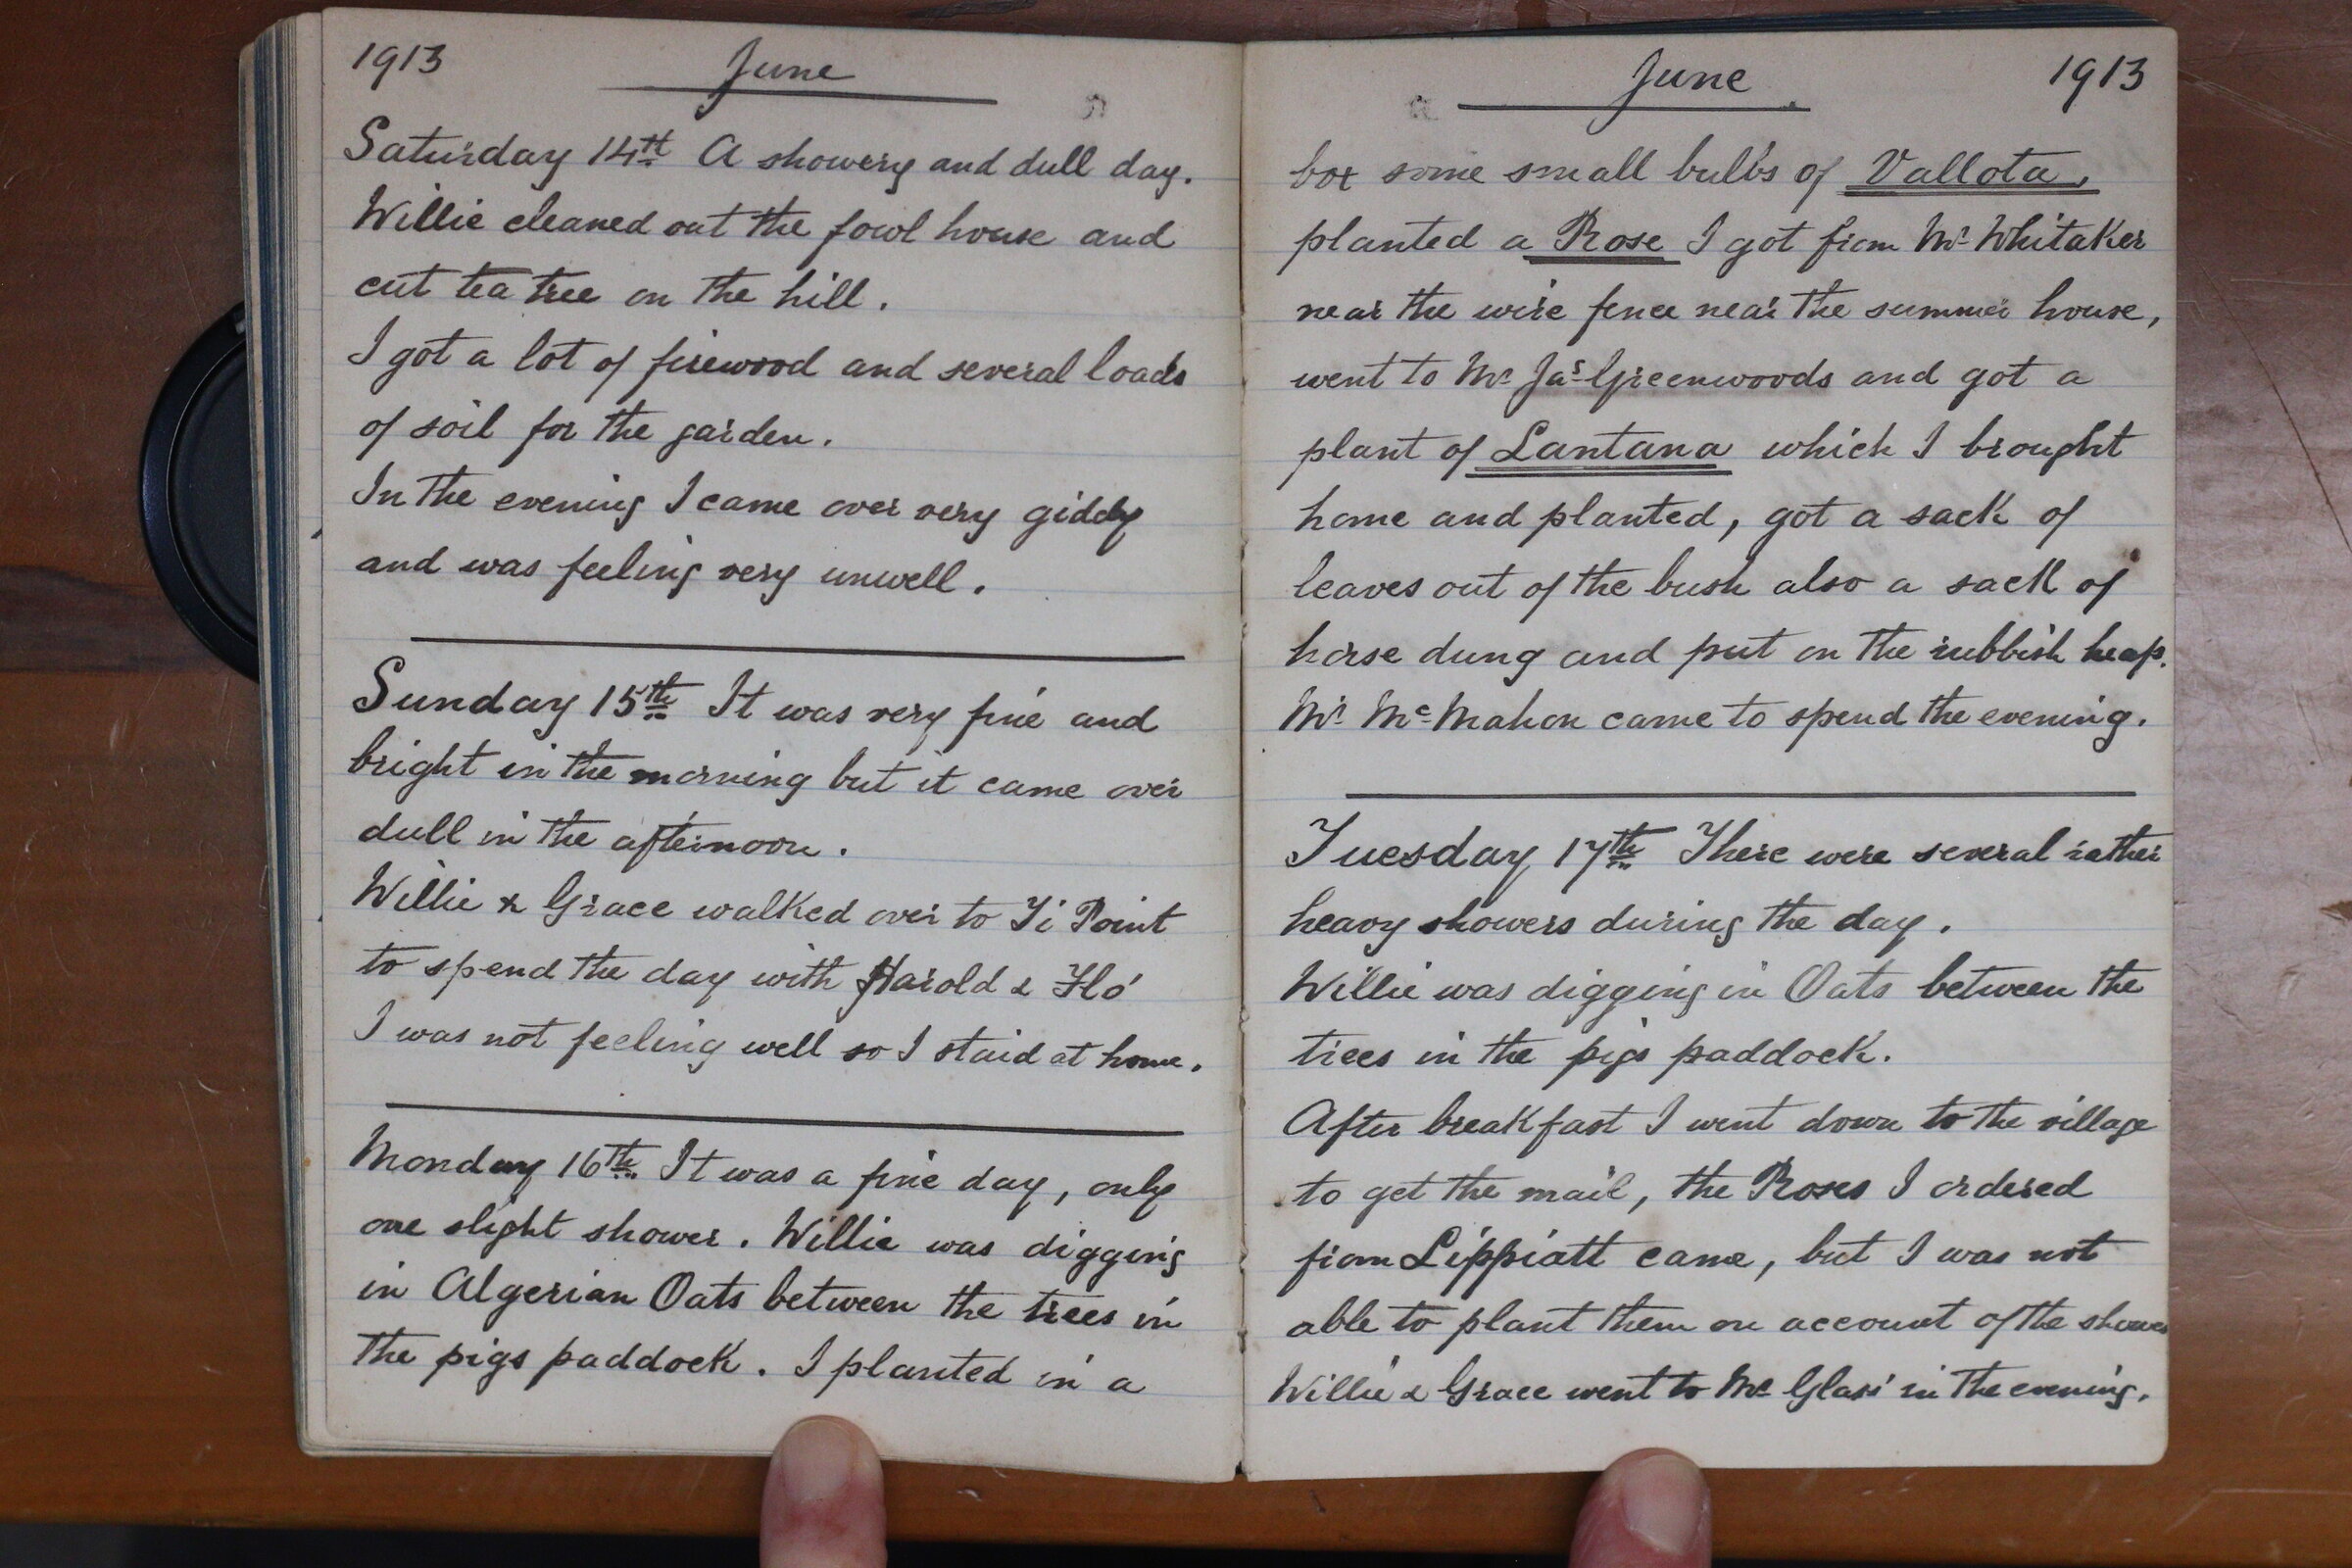 1913 June
Saturday 14th A showery and dull day.
Willie cleaned out the fowl house and
cut tea tree on the hill.
I got a lot of firewood and several loads
of soil for the garden.
In the evening I came over very giddy
and was feeling very unwell.
Sunday 15th It was very fine and
bright in the morning but it came over
dull in the afternoon.
Willie & Grace walked over to Ti Point
to spend the day with Harold & Flo
I was not feeling well so I staid at home.
Monday 16th It was a fine day, only
one slight shower. Willie was digging
in Algerian Oats between the trees in
the pigs paddock. I planted in a
June 1913
box some small bulbs of Vallota,
planted a Rose I got from Mr Whitaker
near the wire fence near the summer house,
went to Mr Jas Greenwoods and got a
plant of Lantana which I brought
home and planted, got a sack of
leaves out of the bush also a sack of
horse dung and put on the rubbish heap.
Mr McMahon came to spend the evening.
Tuesday 17th There were several rather
heavy showers during the day.
Willie was digging in Oats between the
trees in the pigs paddock.
After breakfast I went down to the village
to get the mail, the Roses I ordered
from Lippiatt came, but I was not
able to plant them on account of the showers
Willie & Grace went to Mc Glass' in the evening.